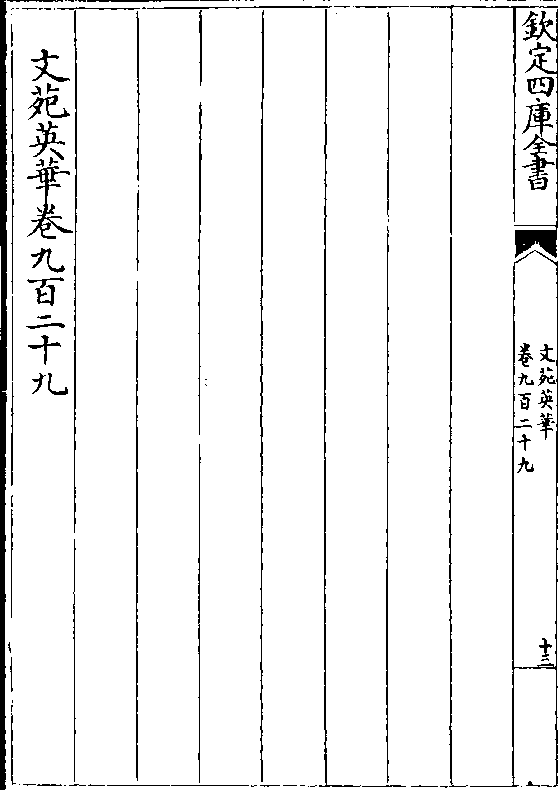 欽定四庫全書
文苑英華
卷九百二十九
十三
文苑英華卷九百二十九